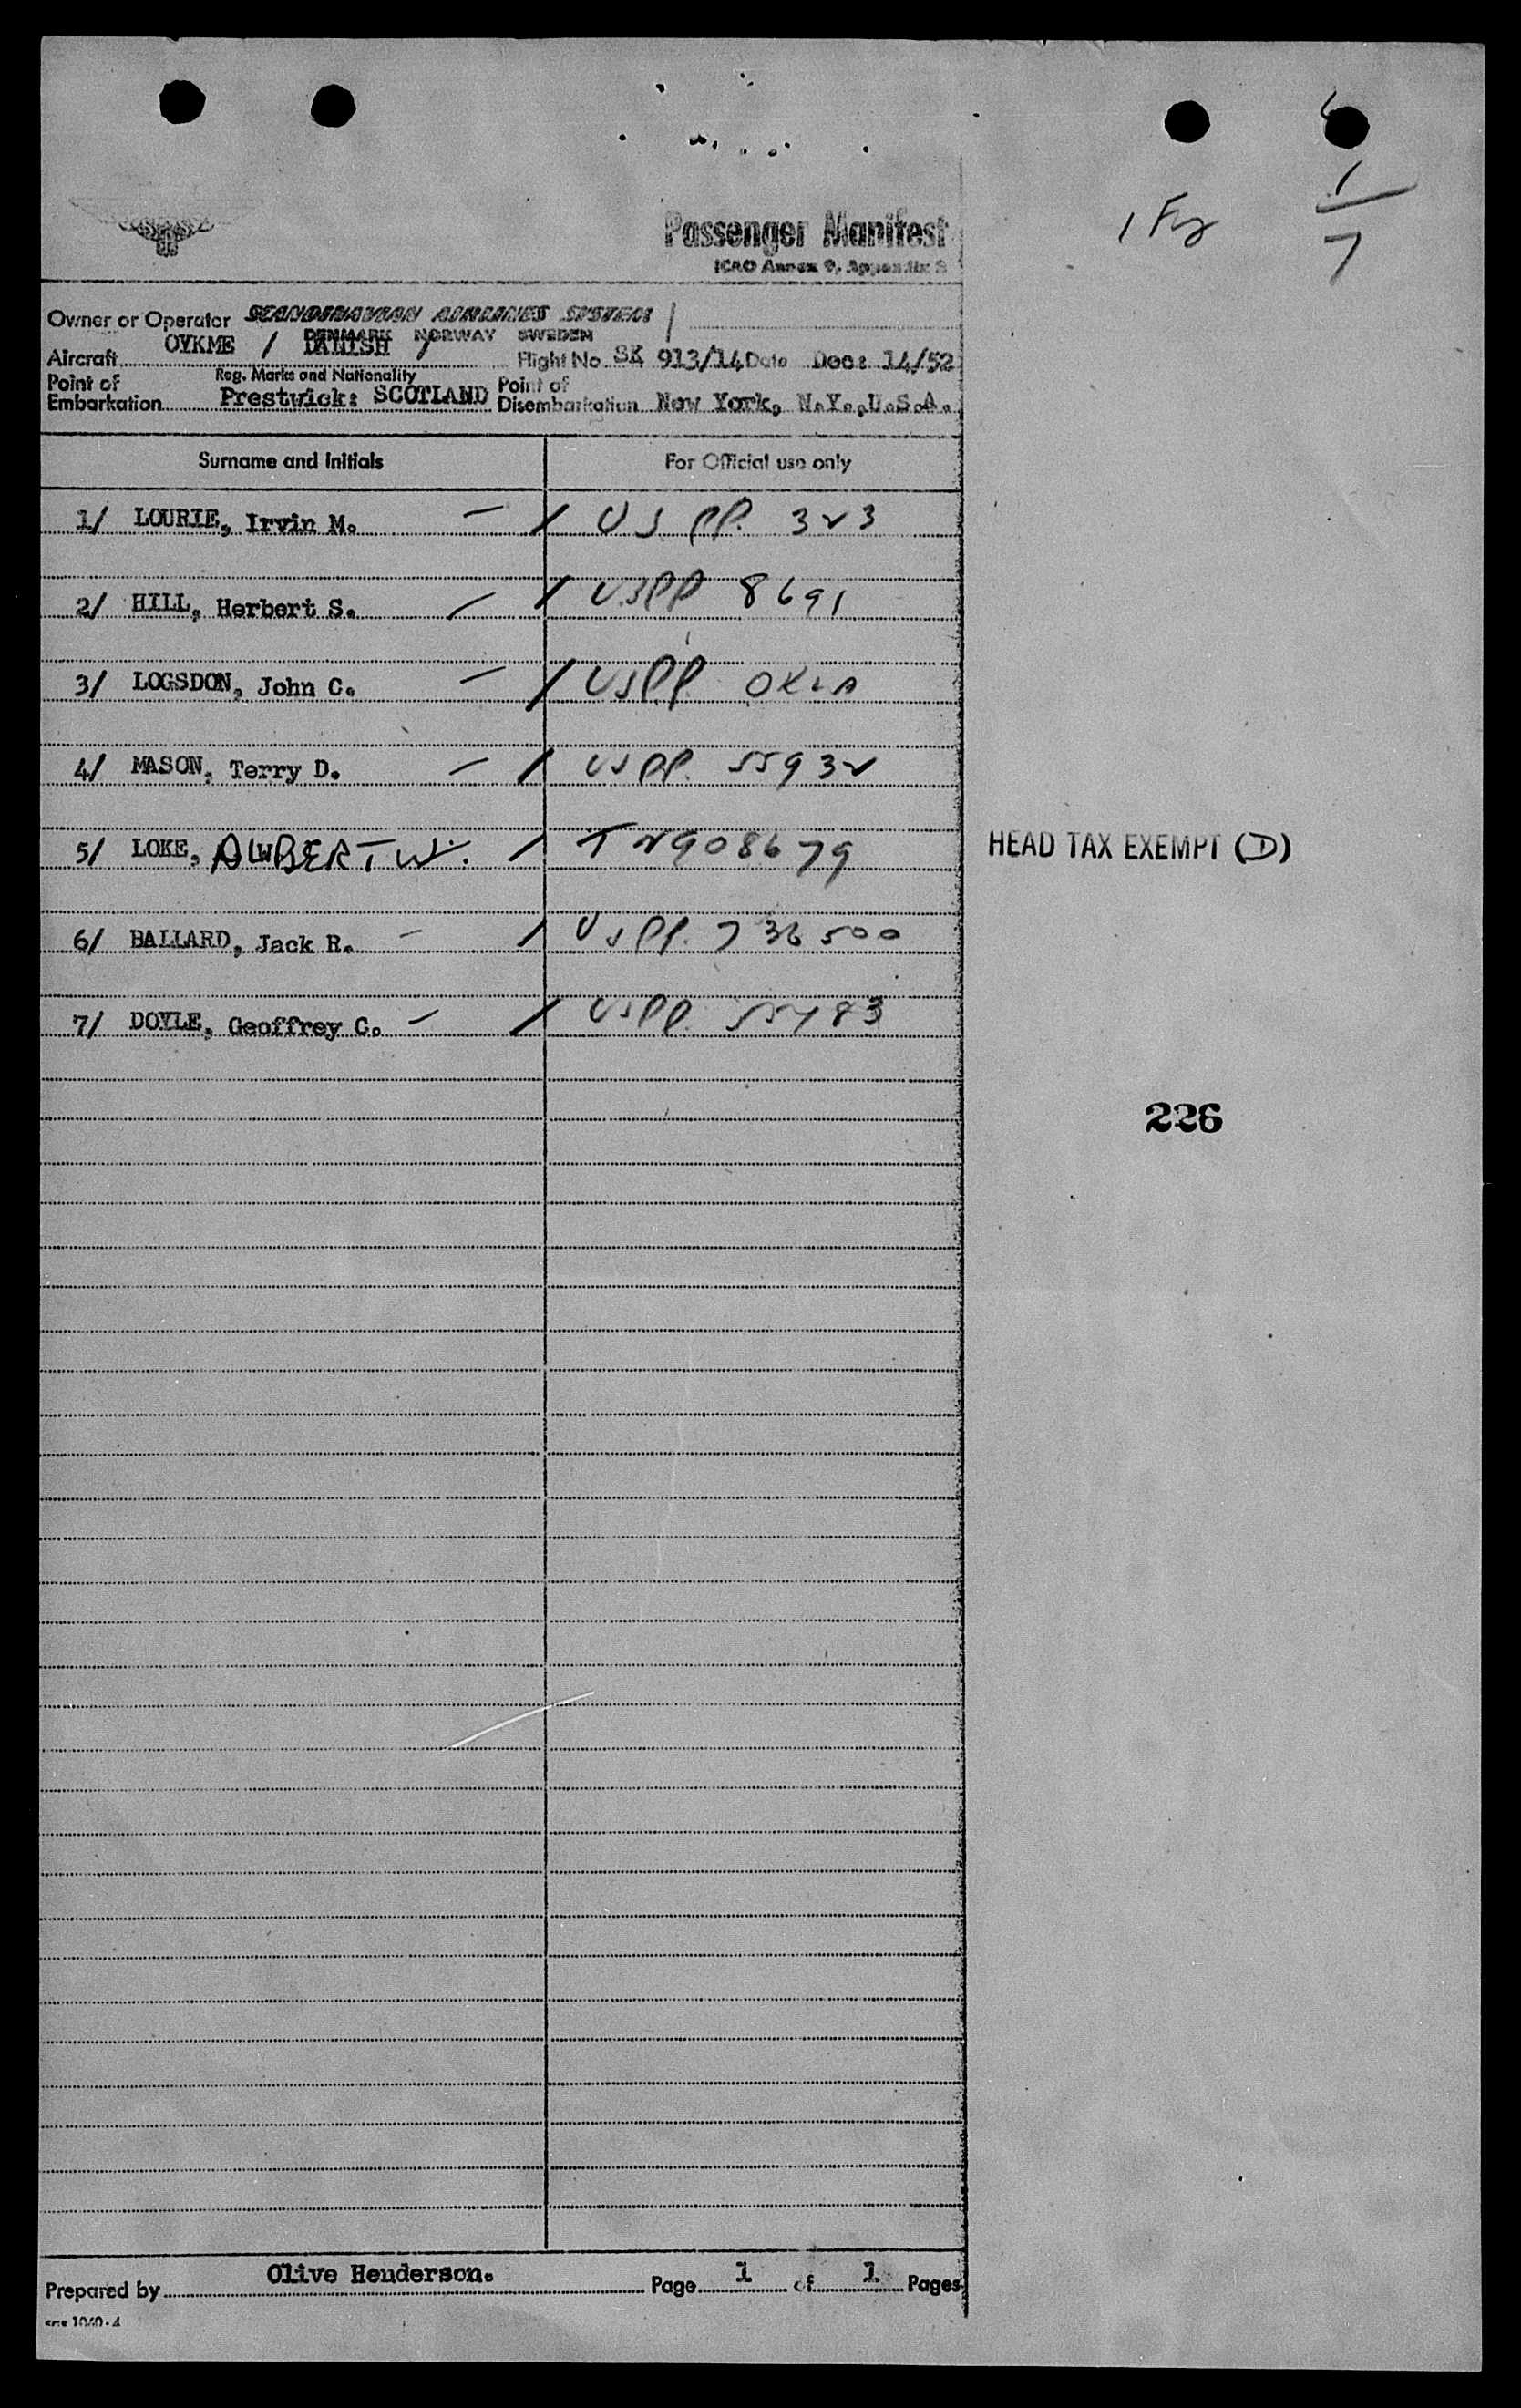 6
1 Fr 1/7
Passenger Manifest
ICAO Annex 9, Appendix 3
Owner or Operator SCANDINAVIAN AIRLINES SYSTEM
DENMARK NORWAY SWEDEN
Aircraft OYKME / DANISH / Flight No. SK 913/14 Date Dec: 14/52
Reg. Marks and Nationality
Point of Embarkation Prestwick: SCOTLAND Point of Disembarkation New York, N.Y.,U.S.A.
Surname and Initials For Official use only
1/ LOURIE, Irvin M. — / US PP. 323
2/ HILL, Herbert S. — / USPP 8691
3/ LOGSDON, John C. — / USPP. OKLA
4/ MASON, Terry D. — / USPP. 55932
5/ LOKE, ALBERT W. / T N908679 HEAD TAX EXEMPT (D)
6/ BALLARD, Jack R. — / USPP. 736500
7/ DOYLE, Geoffrey C. — / USPP. 55483
226
Prepared by Olive Henderson. Page 1 of 1 Pages
sas 1040-4